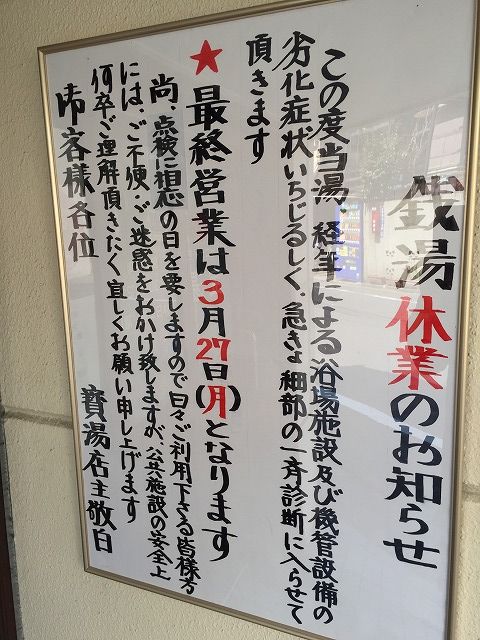 銭湯休業のお知らせ
この度当湯、経年による浴場施設及び機管設備の
劣化症状いちじるしく、急きょ細部の一斉診断に入らせて
頂きます
★最終営業は3月27日(月)となります
尚、点検に相応の日を要しますので日々ご利用下さる皆様方
には、ご不便・ご迷惑をおかけ致しますが、公共施設の安全上
何卒ご理解頂きたく宜しくお願い申し上げます
御客様各位
寳湯店主敬白